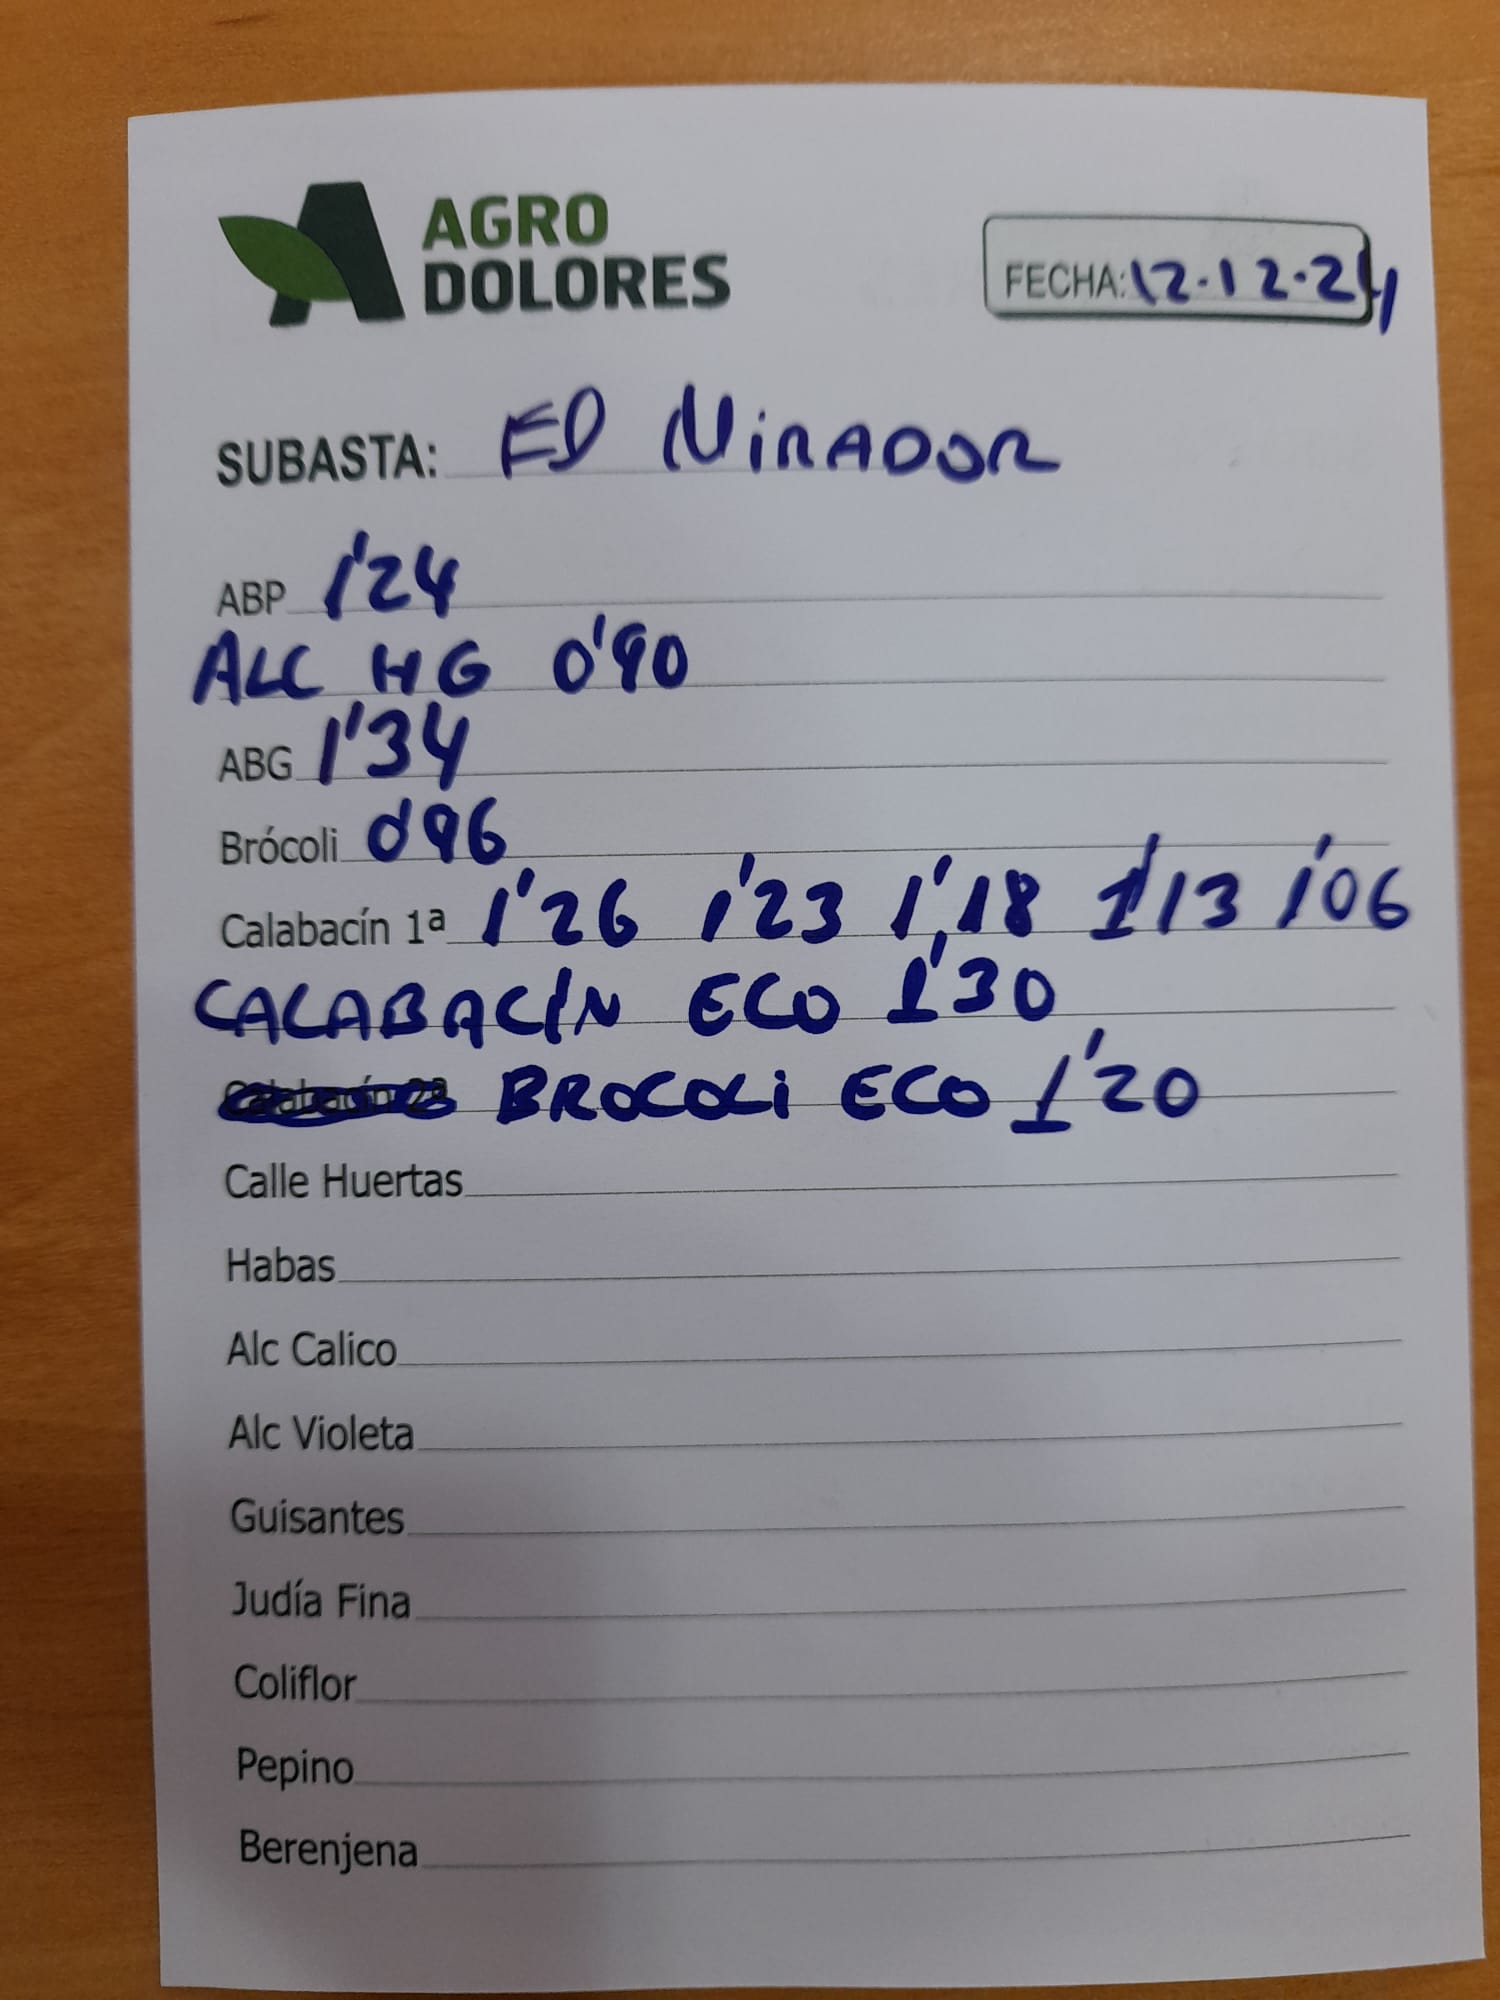 AGRO
DOLORES
FECHA: 12-12-24
SUBASTA: El MiRADOR
ABP 1'24
ALC HG 0'90
ABG 1'34
Brócoli 0'96
Calabacín 1ª 1'26 1'23 1'18 1'13 1'06
CALABACIN ECO 1'30
Calabacín 2ª BROCOLi ECO 1'20
Calle Huertas
Habas
Alc Calico
Alc Violeta
Guisantes
Judía Fina
Coliflor
Pepino
Berenjena